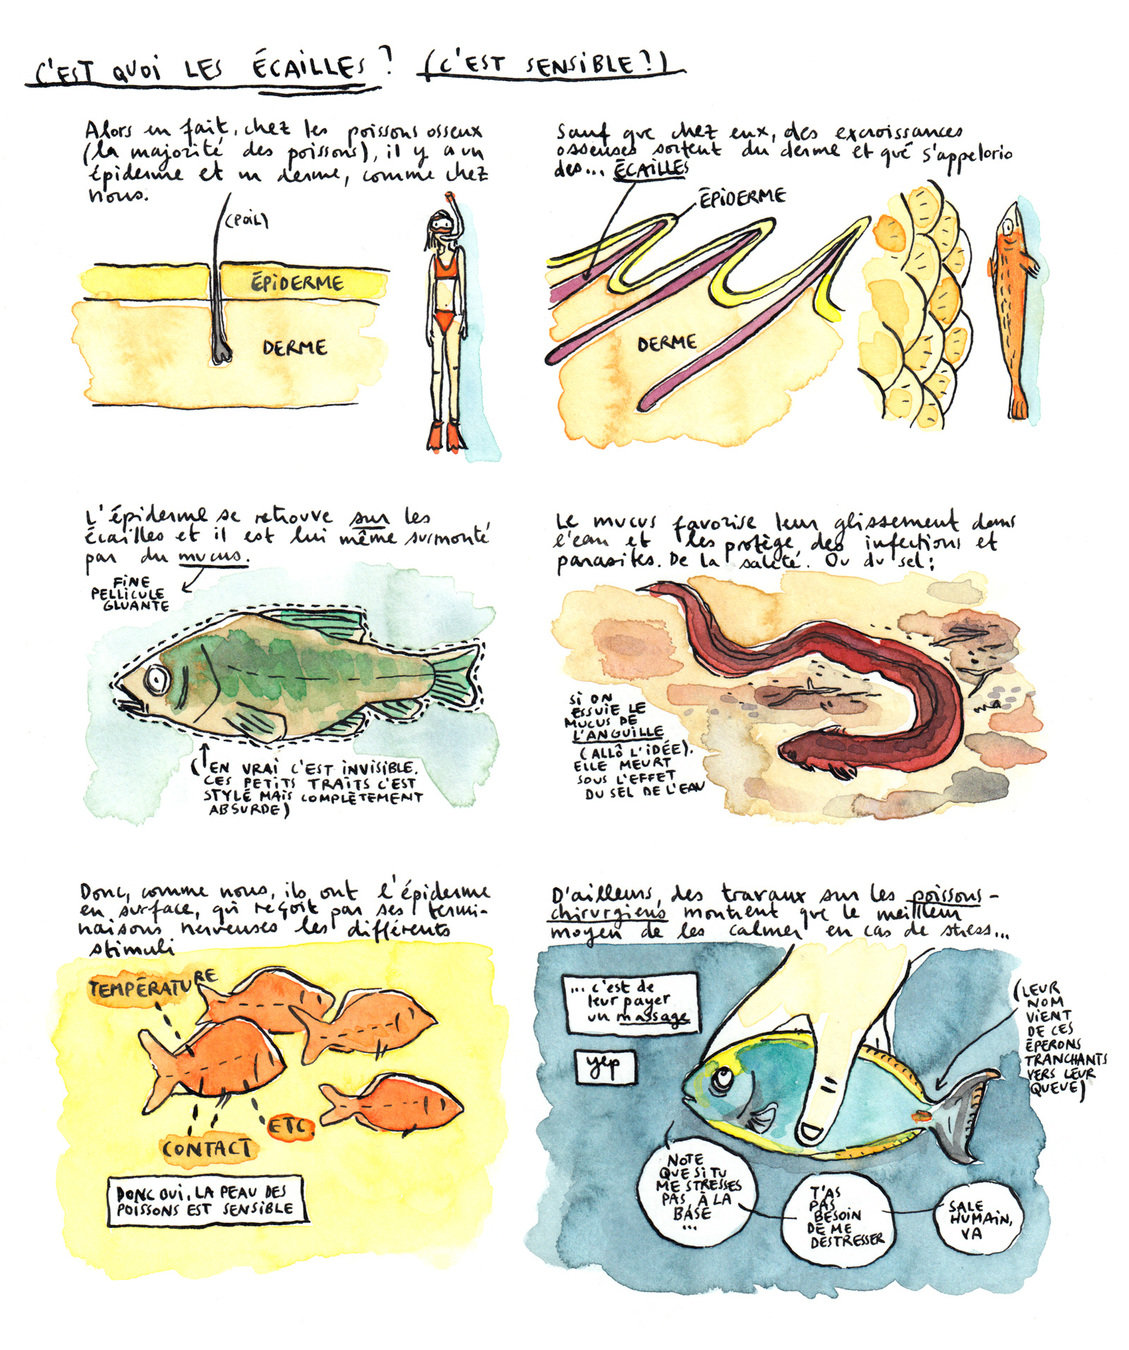 C'EST QUOI LES ÉCAILLES ? (C'EST SENSIBLE ?)
Alors en fait, chez les poissons osseux
(la majorité des poissons), il y a un
épiderme et un derme, comme chez
nous.
(POIL)
ÉPIDERME
DERME
Sauf que chez eux, des excroissances
osseuses sortent du derme et que s'appelorio
des... ÉCAILLES
ÉPIDERME
DERME
L'épiderme se retrouve sur les
écailles et il est lui même surmonté
par du mucus.
FINE
PELLICULE
GLUANTE
(EN VRAI C'EST INVISIBLE.
CES PETITS TRAITS C'EST
STYLÉ MAIS COMPLÈTEMENT
ABSURDE)
Le mucus favorise leur glissement dans
l'eau et les protège des infections et
parasites. De la saleté. Ou du sel :
SI ON
ESSUIE LE
MUCUS DE
L'ANGUILLE
(ALLÔ L'IDÉE),
ELLE MEURT
SOUS L'EFFET
DU SEL DE L'EAU
Donc, comme nous, ils ont l'épiderme
en surface, qui reçoit par ses termi-
naisons nerveuses les différents
stimuli
TEMPÉRATURE
CONTACT
ETC.
DONC OUI, LA PEAU DES
POISSONS EST SENSIBLE
D'ailleurs, des travaux sur les poissons-
chirurgiens montrent que le meilleur
moyen de les calmer en cas de stress...
... c'est de
leur payer
un massage
yep
(LEUR
NOM
VIENT
DE CES
ÉPERONS
TRANCHANTS
VERS LEUR
QUEUE)
NOTE
QUE SI TU
ME STRESSES
PAS, À LA
BASE
...
T'AS
PAS
BESOIN
DE ME
DESTRESSER
SALE
HUMAIN,
VA